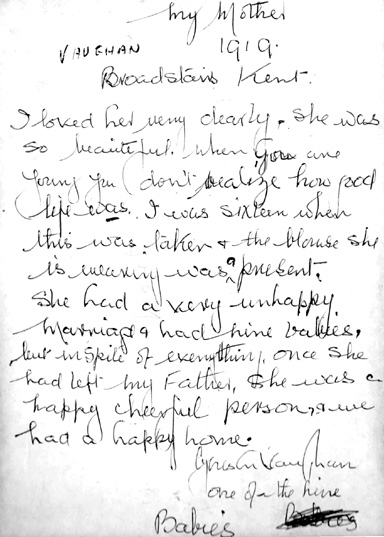 My Mother
VAUGHAN 1919.
Broadstairs Kent.
I loved her very dearly. She was
so beautiful. When you are
young you don't realize how good
life was. I was sixteen when
this was taken & the blouse she
is wearing was a present.
She had a very unhappy
Marriage & had nine babies,
but inspite of everything, once she
had left my Father, she was a
happy cheerful person, & we
had a happy home.
Vaughan
one of the nine
Babies